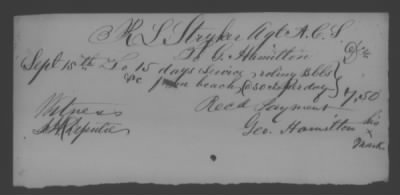 R S Stryker Agt A.C.S.
To G. Hamilton Dr
Sept 15th To 15 days service roling Bbls
&c from beach @ 50 cts per day } 7.50
Recd Payment
Witness
Geo. Hamilton his
x
mark